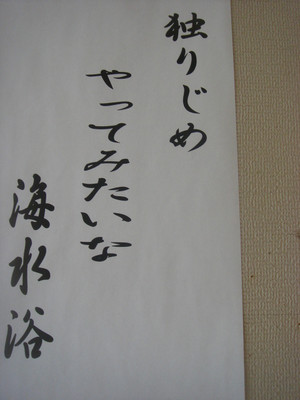 独りじめ
やってみたいな
海水浴